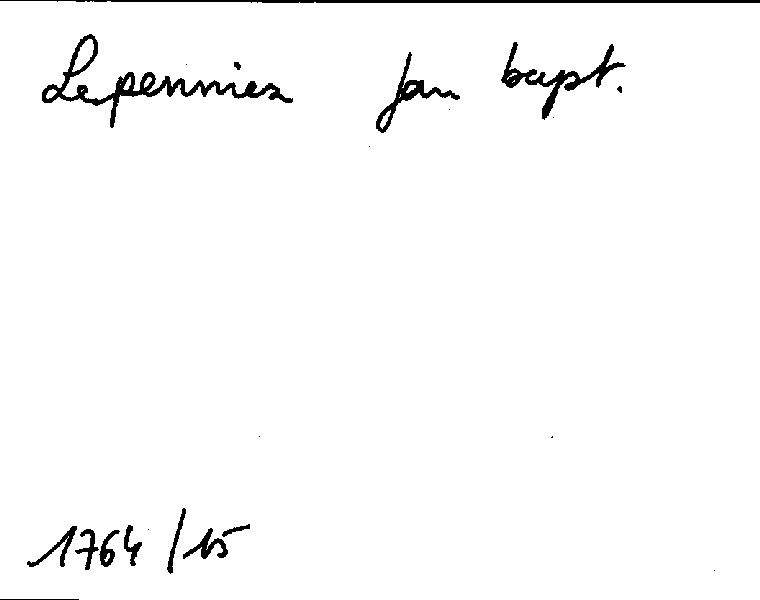 Lepennier Jan bapt.
1764/15